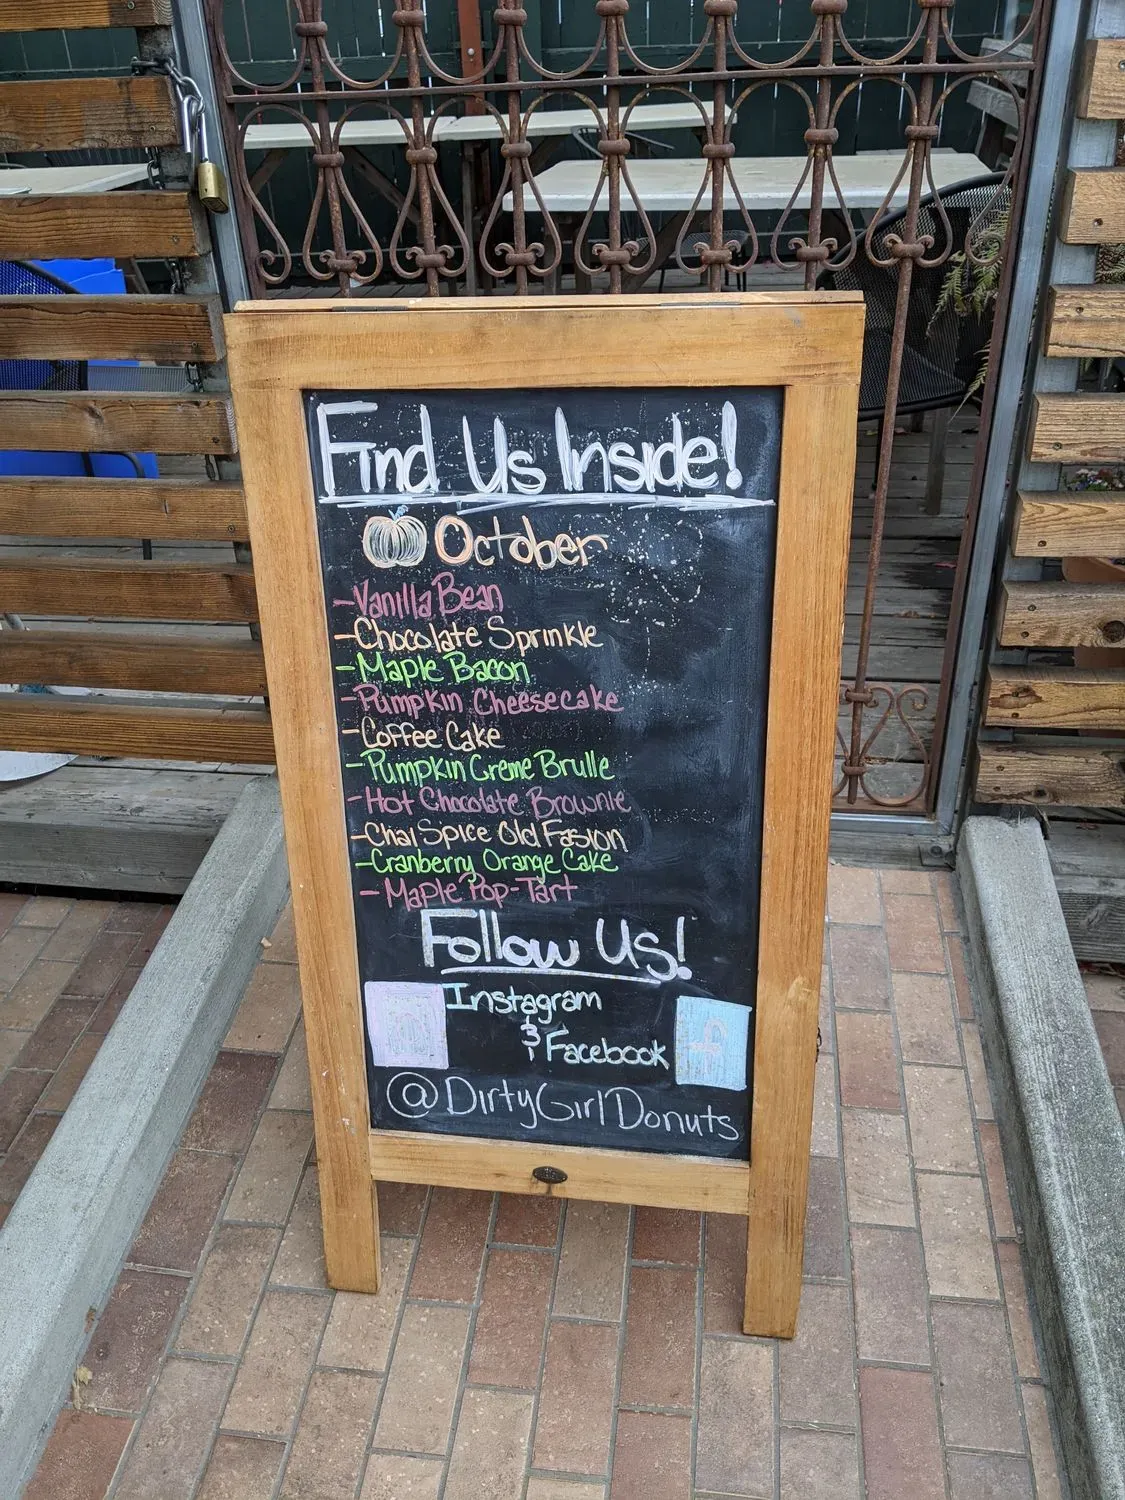 Find Us Inside!
October
-Vanilla Bean
-Chocolate Sprinkle
-Maple Bacon
-Pumpkin Cheesecake
-Coffee Cake
-Pumpkin Creme Brulle
-Hot Chocolate Brownie
-Chai Spice Old Fasion
-Cranberry Orange Cake
-Maple Pop-Tart
Follow Us!
Instagram
&
Facebook
f
@DirtyGirlDonuts